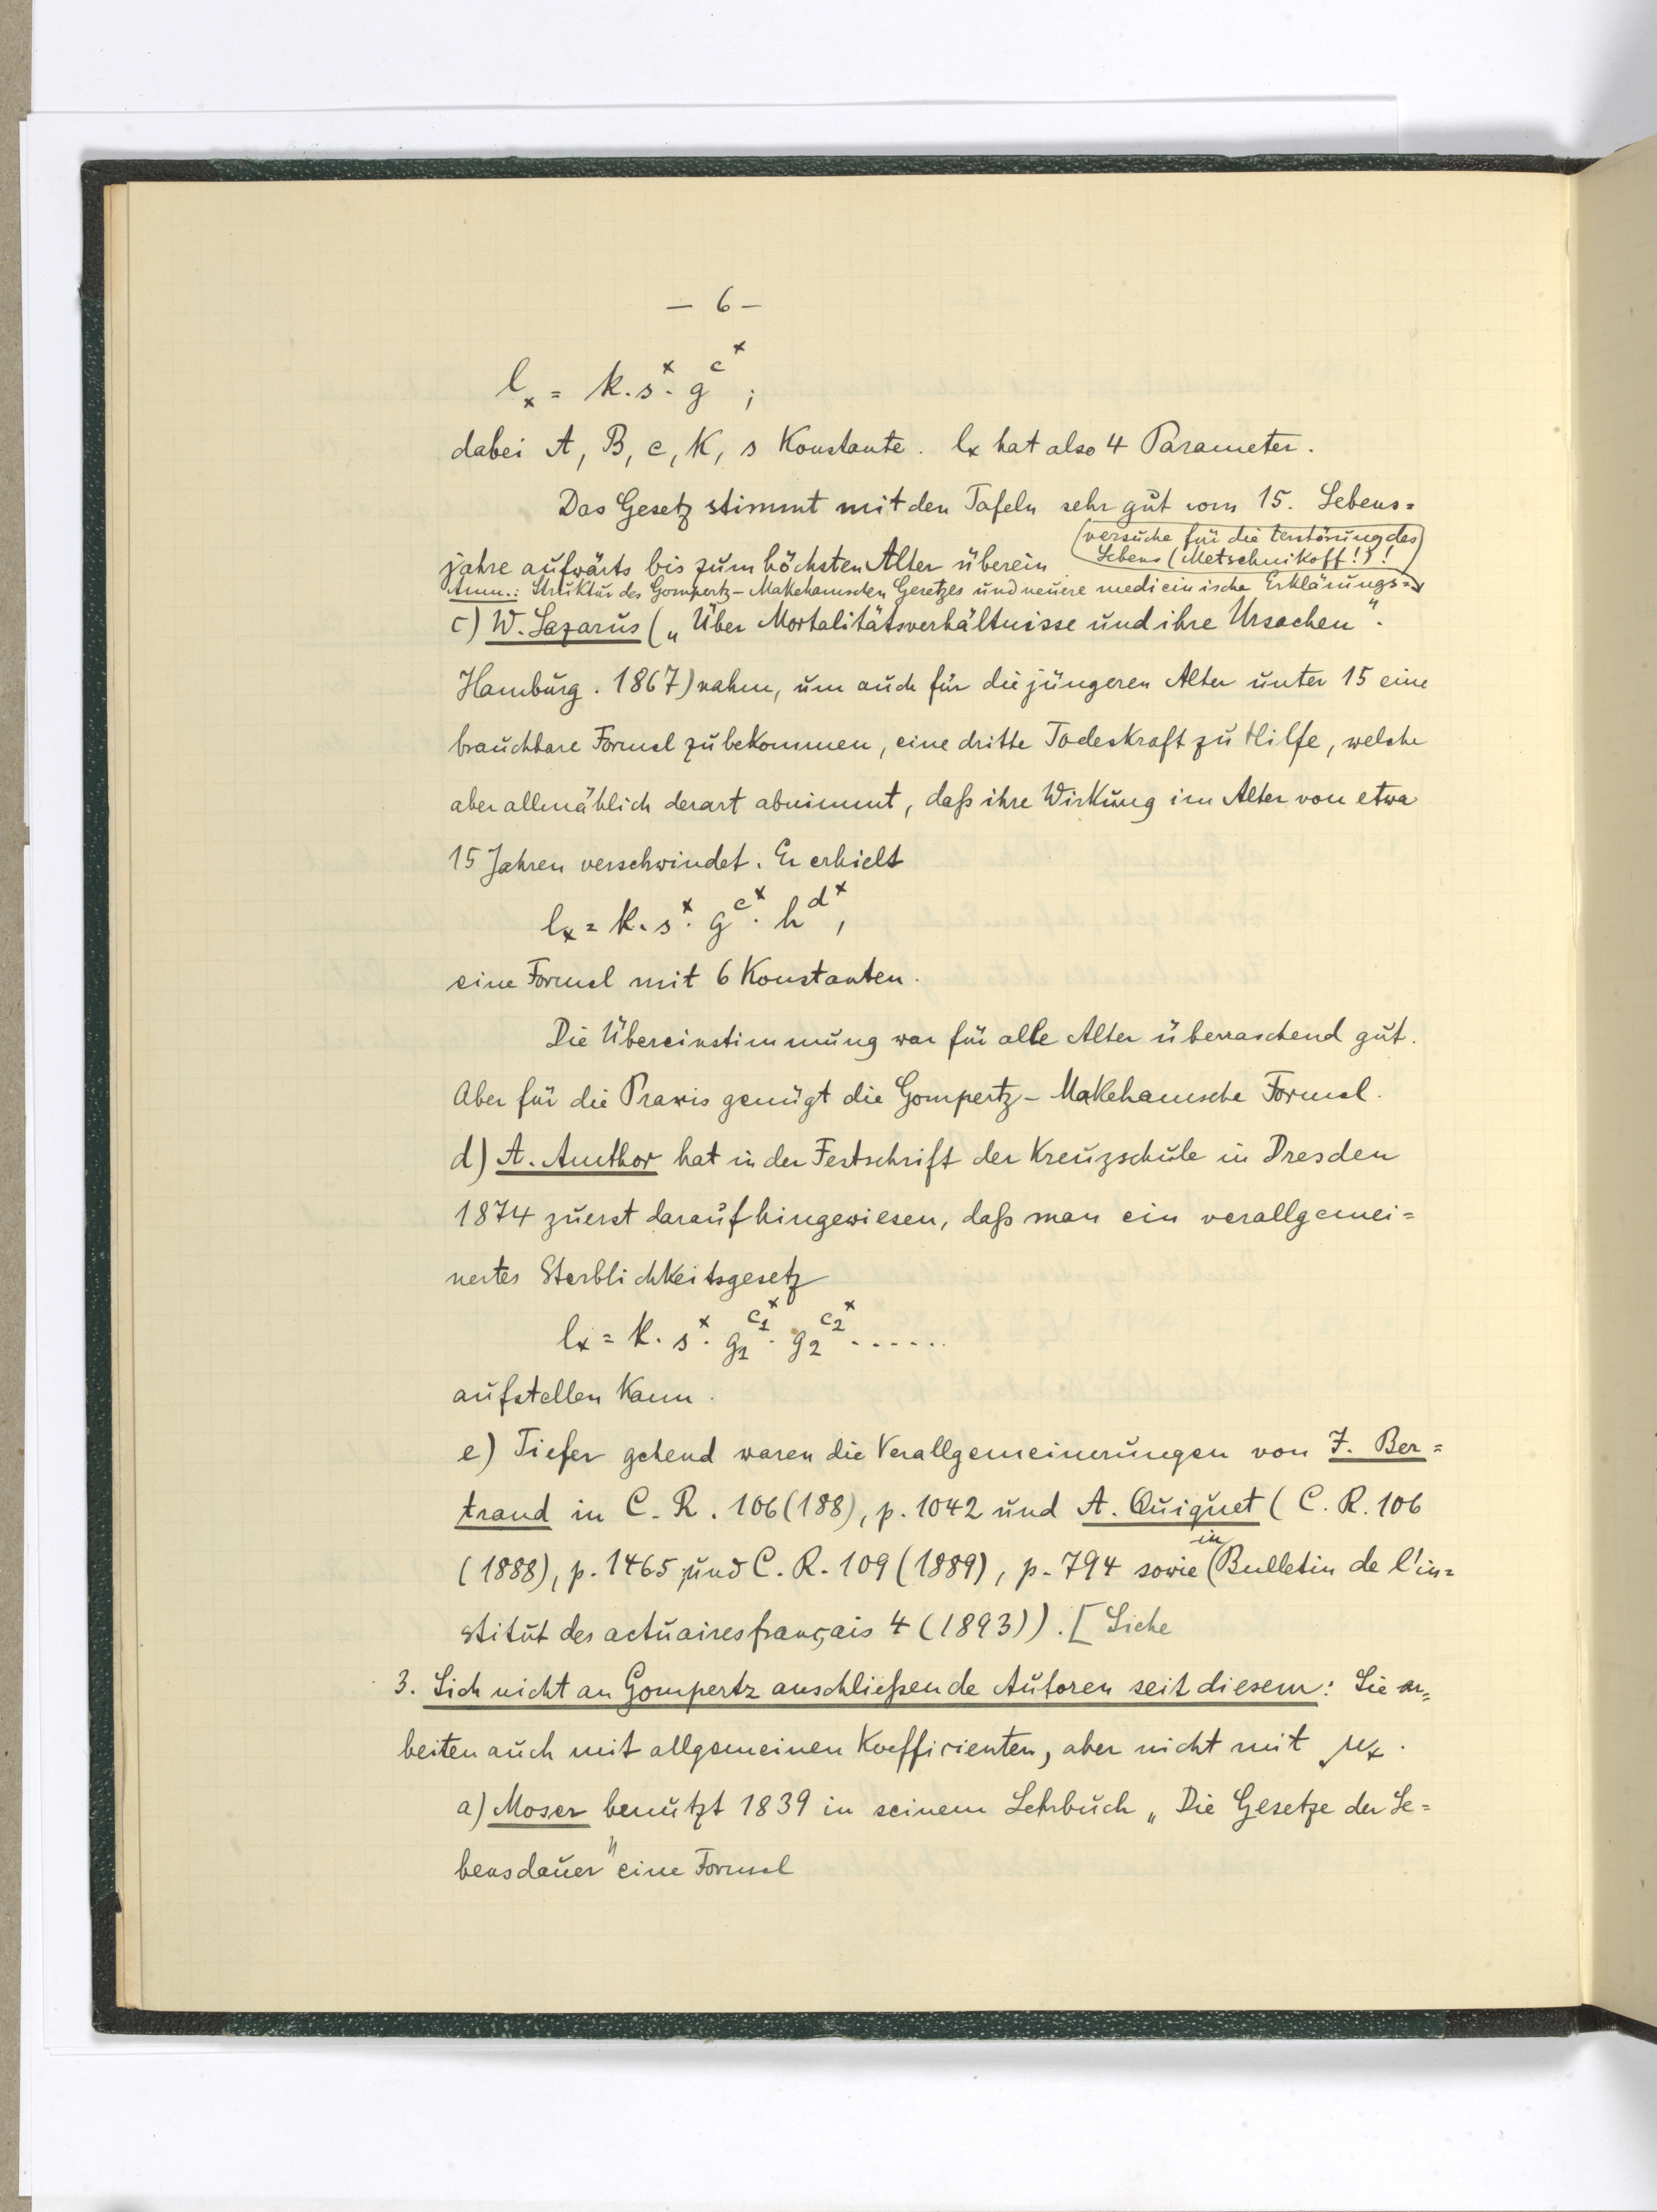 — 6 —
lₓ = k. sˣ. g^c^x ;
dabei A, B, c, K, s Konstante. lₓ hat also 4 Parameter.
Das Gesetz stimmt mit den Tafeln sehr gut vom 15. Lebens=
jahre aufwärts bis zum höchsten Alter überein
Anm.: Struktur des Gompertz-Makehamschen Gesetzes und neuere medicinische Erklärungs=
versuche für die Zerstörung des
Lebens (Metschnikoff!)!
c) W. Lazarus („Über Mortalitätsverhältnisse und ihre Ursachen".
Hamburg. 1867) nahm, um auch für die jüngeren Alter unter 15 eine
brauchbare Formel zu bekommen, eine dritte Todeskraft zu Hilfe, welche
aber allmählich derart abnimmt, daß ihre Wirkung im Alter von etwa
15 Jahren verschwindet. Er erhielt
lₓ = k. sˣ. g^c^x. h^d^x,
eine Formel mit 6 Konstanten.
Die Übereinstimmung war für alle Alter überraschend gut.
Aber für die Praxis genügt die Gompertz-Makehamsche Formel.
d) A. Amthor hat in der Festschrift der Kreuzschule in Dresden
1874 zuerst darauf hingewiesen, daß man ein verallgemei=
nertes Sterblichkeitsgesetz
lₓ = k. sˣ. g₁^c₁^x. g₂^c₂^x ......
aufstellen kann.
e) Tiefer gehend waren die Verallgemeinerungen von J. Ber=
trand in C. R. 106 (188), p. 1042 und A. Quiquet (C. R. 106
(1888), p. 1465 und C. R. 109 (1889), p. 794 sowie in (Bulletin de l'in=
stitut des actuaires français 4 (1893)). [Siehe
3. Sich nicht an Gompertz anschließende Autoren seit diesem: Sie ar=
beiten auch mit allgemeinen Koefficienten, aber nicht mit μₓ.
a) Moser benutzt 1839 in seinem Lehrbuch „Die Gesetze der Le=
bensdauer" eine Formel